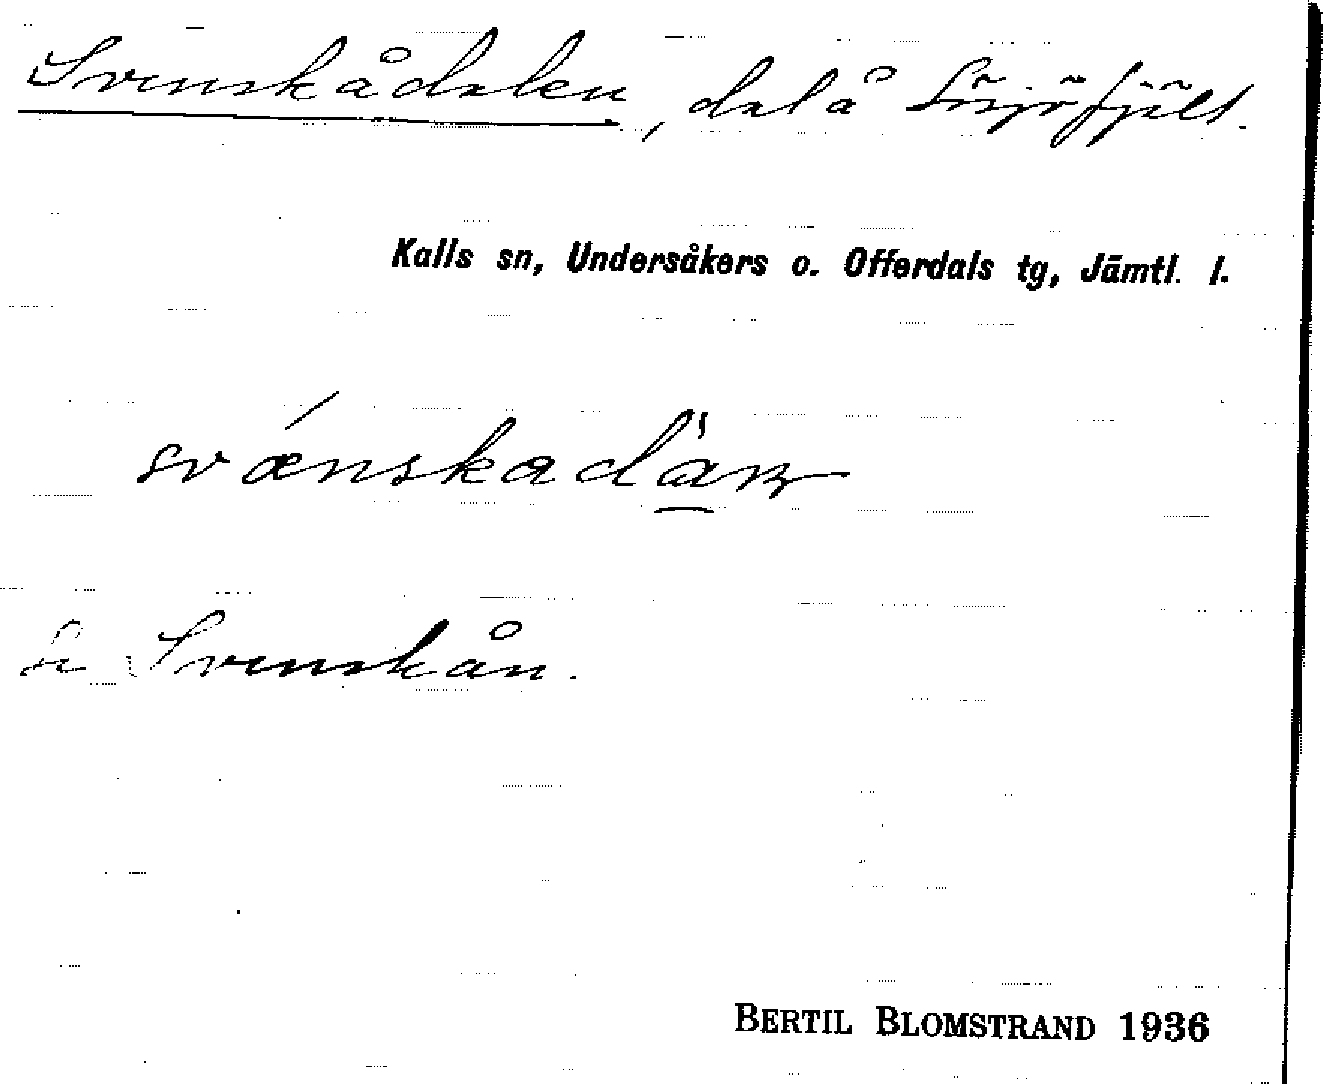 Svenskådalen, dal å Sösjöfjäll.
Kalls sn, Undersåkers o. Offerdals tg, Jämtl. l.
Se Svenskån.
BERTIL BLOMSTRAND 1936